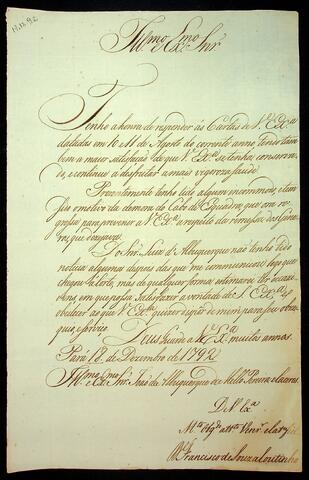 18.12.92
Ill.mo e Ex.mo Snr.
Tenho a honra de responder ás Cartas de V. Ex.a
datadas em 10 e 11 de Agosto do corrente anno, e
bem a maior satisfação de que V. Ex.a se tenha conserva-
do, e continue a disfrutar a mais vigoroza saude.
Prezentemente tenho tido algum incommodo, e
foi o motivo da demora do Cabo de Esquadra que vai
para prevenir a V. Ex.a a respeito da remessa dos
que dezejava.
Do Snr. Luis d'Albuquerque não tenho tido
noticia alguma depois das que me communicou logo que
chegou a Lisboa, mas de qualquer forma estimarei ter occazi-
oens, em que possa satisfazer a vontade de S. Ex.a, e
obedecer ao que V. Ex.a quizer exigir de mim para seu obse-
quio e serviço.
Deus Guarde a V. Ex.a muitos annos.
Pará 18 de Dezembro de 1792
Ill.mo e Ex.mo Snr. João de Albuquerque de Mello Pereira e Caceres.
D. V. Ex.a
M.to Obg.do e
D. Francisco de Souza Coutinho